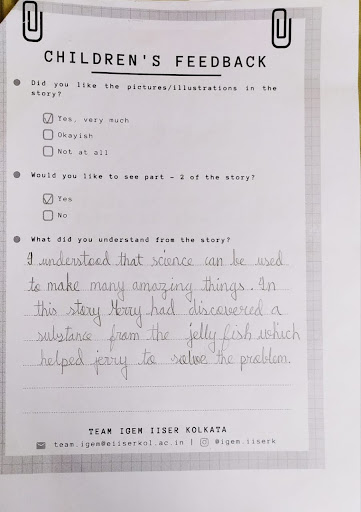 CHILDREN'S FEEDBACK
Did you like the pictures/illustrations in the
story?
Yes, very much
Okayish
Not at all
Would you like to see part - 2 of the story?
Yes
No
What did you understand from the story?
I understood that science can be used
to make many amazing things. In
this story Merry had discovered a
substance from the jelly fish which
helped jerry to solve the problem.
TEAM IGEM IISER KOLKATA
team.igem@eiiserkol.ac.in | @igem.iiserk